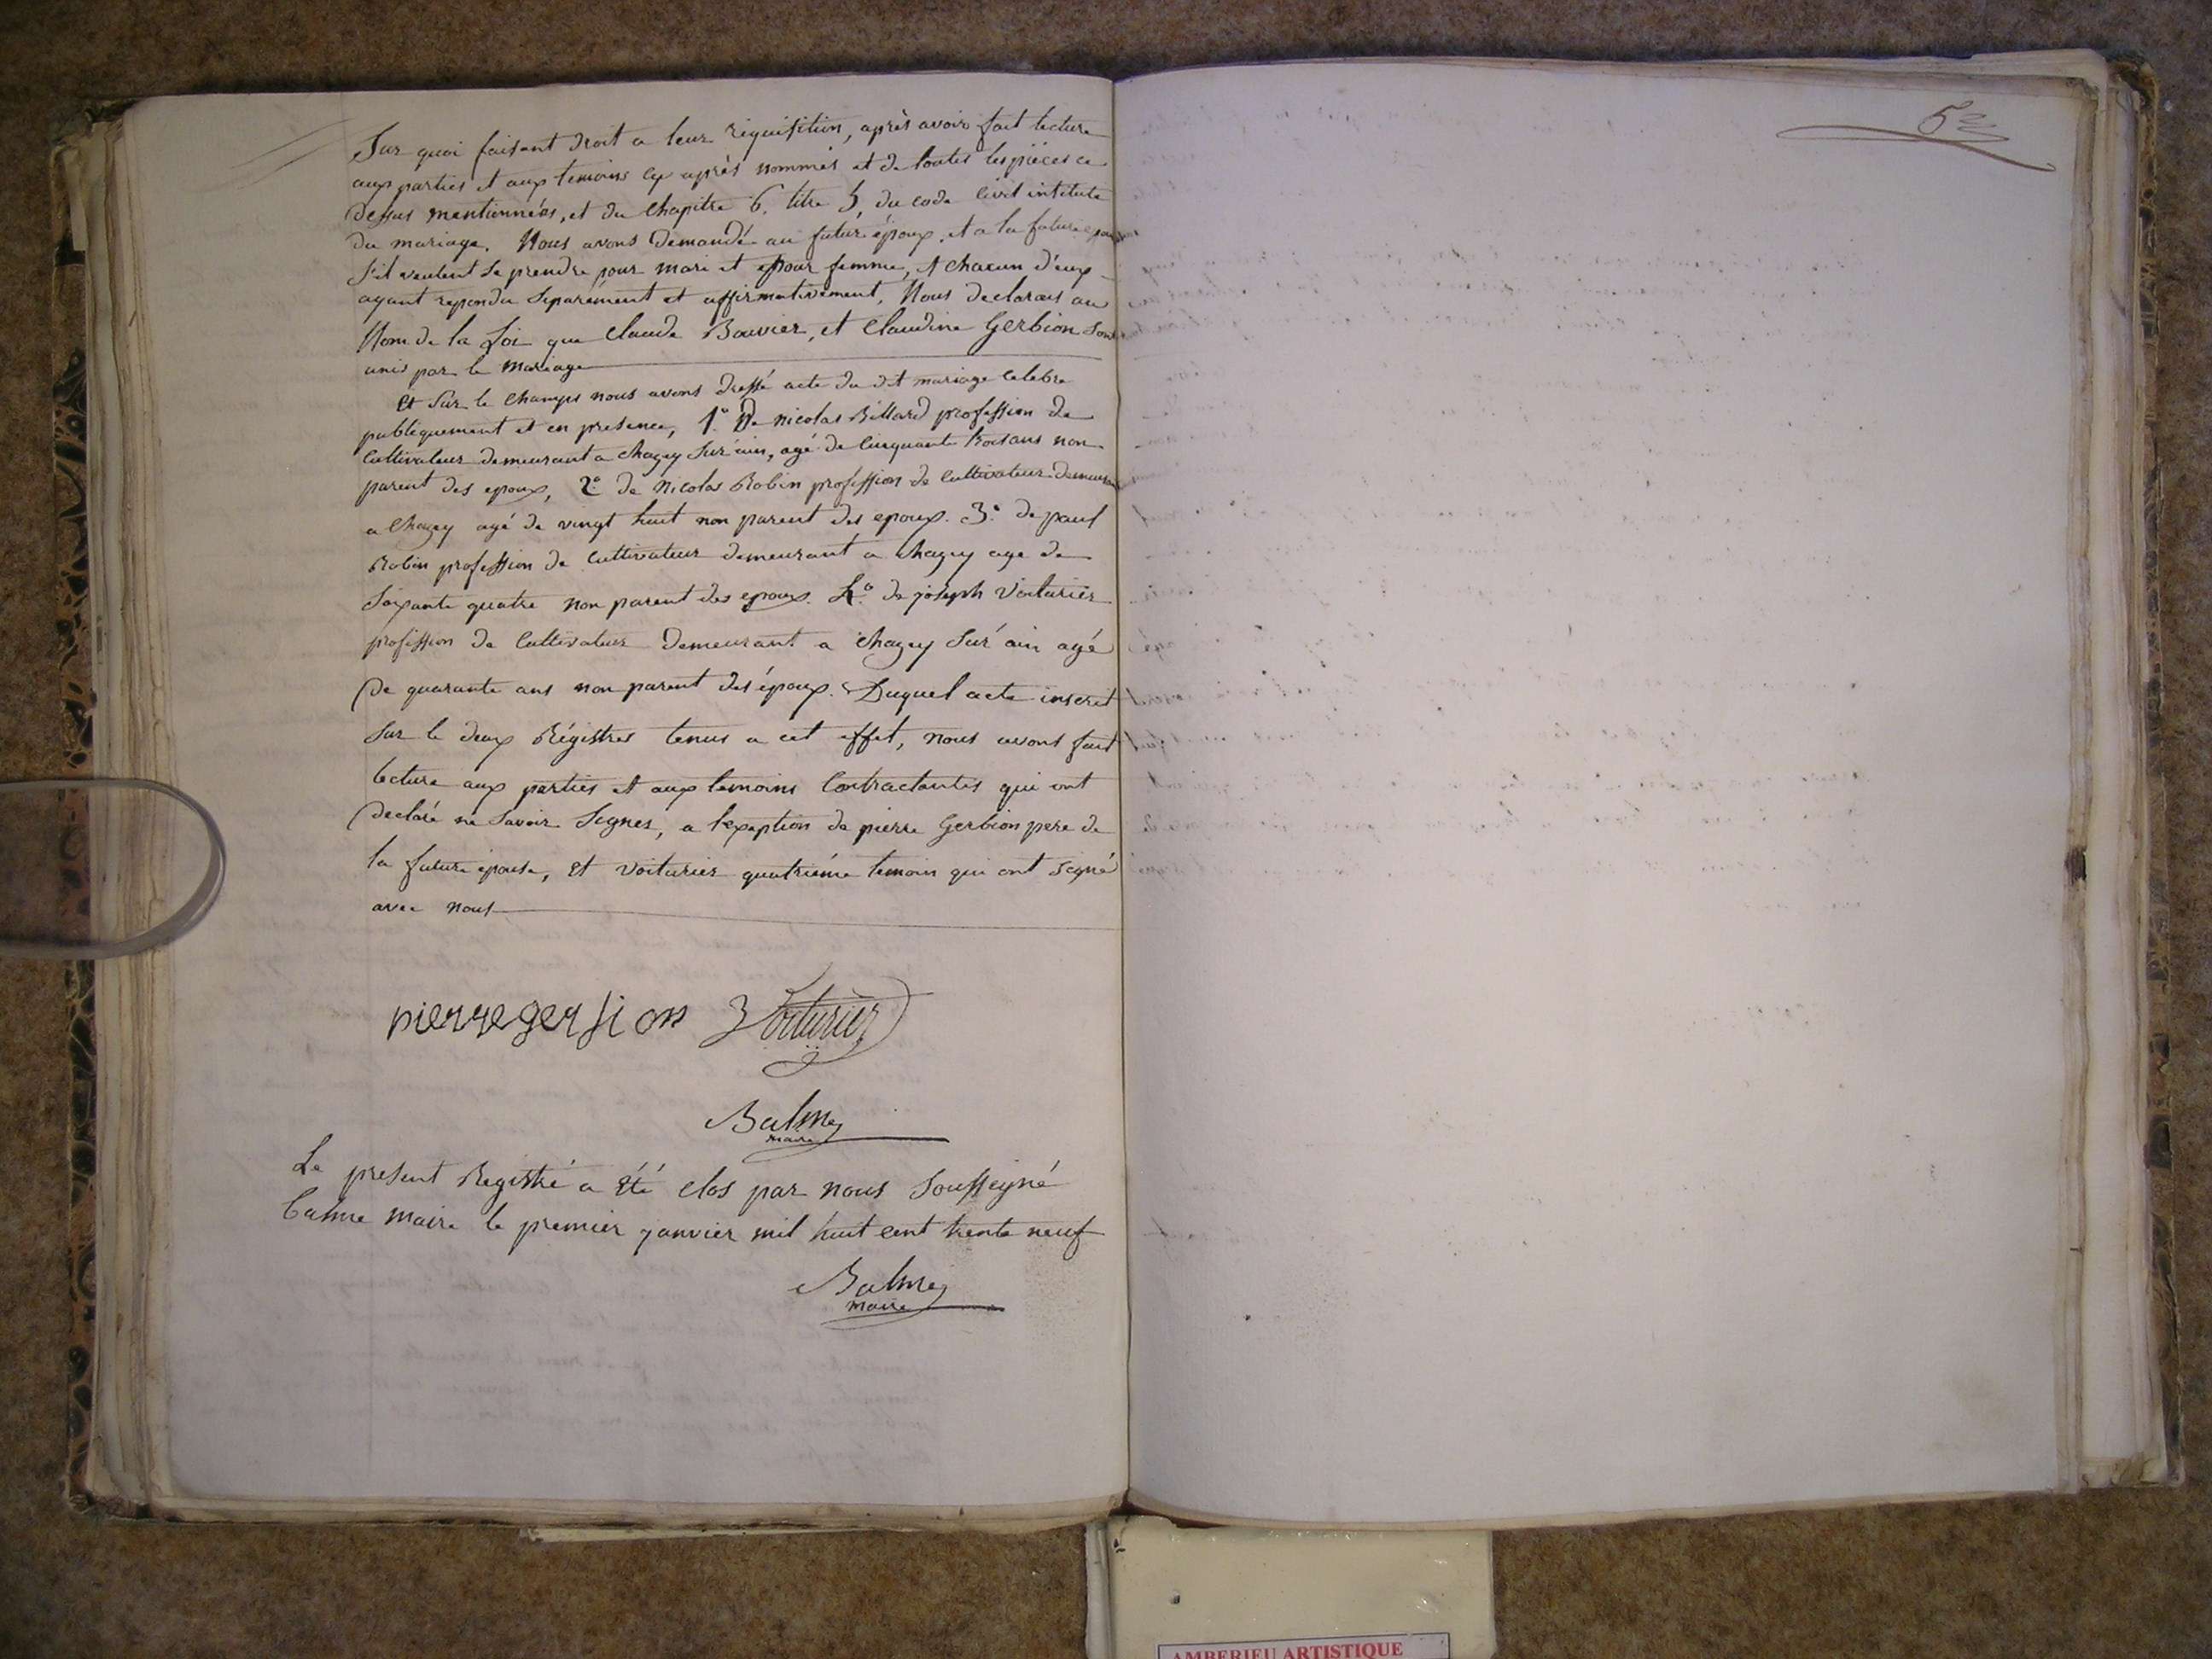 Sur quoi faisant droit a leur réquisition, après avoir fait lecture
aux parties et aux temoins cy après nommés et de toutes les pièces ce
dessus mentionnées, et du Chapitre 6. titre 5, du code civil intitute
du mariage. Nous avons demandé au futur époux, et a la future épouse
s'il veulent se prendre pour mari et epour femme, et chacun d'eux
ayant repondu separément et affirmativement, Nous declarons au
Nom de la Loi que Claude Bouvier, et Claudine Gerbion sont
unis par le mariage
Et sur le champs nous avons dressé acte du dit mariage celebre
publiquement et en presence, 1.° De nicolas Billard profession de
Cultivateur demeurant a chazey sur ain, agé de Cinquante trois ans non
parent des epoux, 2.° de Nicolas Robin profession de Cultivateur demeurant
a Chazey agé de vingt huit non parent des epoux. 3.° de paul
Robin profession de Cultivateur demeurant a Chazey age de
Soixante quatre non parent des epoux. 4.° de joseph Voiturier
profession de Cultivateur demeurant a Chazey Sur ain agé
De quarante ans non parent des époux. Duquel acte inscrit
sur le deux Régistres tenus a cet effet, nous avons fait
lecture aux parties et aux temoins Contractantes qui ont
declaré ne savoir Signer, a l'exception de pierre Gerbion pere de
la future épouse, et Voiturier quatriéme temoin qui ont signé
avec nous
pierre gerbion Voiturier
Balme
maire
Le present Registre a été clos par nous soussigné
Balme Maire le premier janvier mil huit cent trente neuf
Balme
maire
5
AMBERIEU ARTISTIQUE